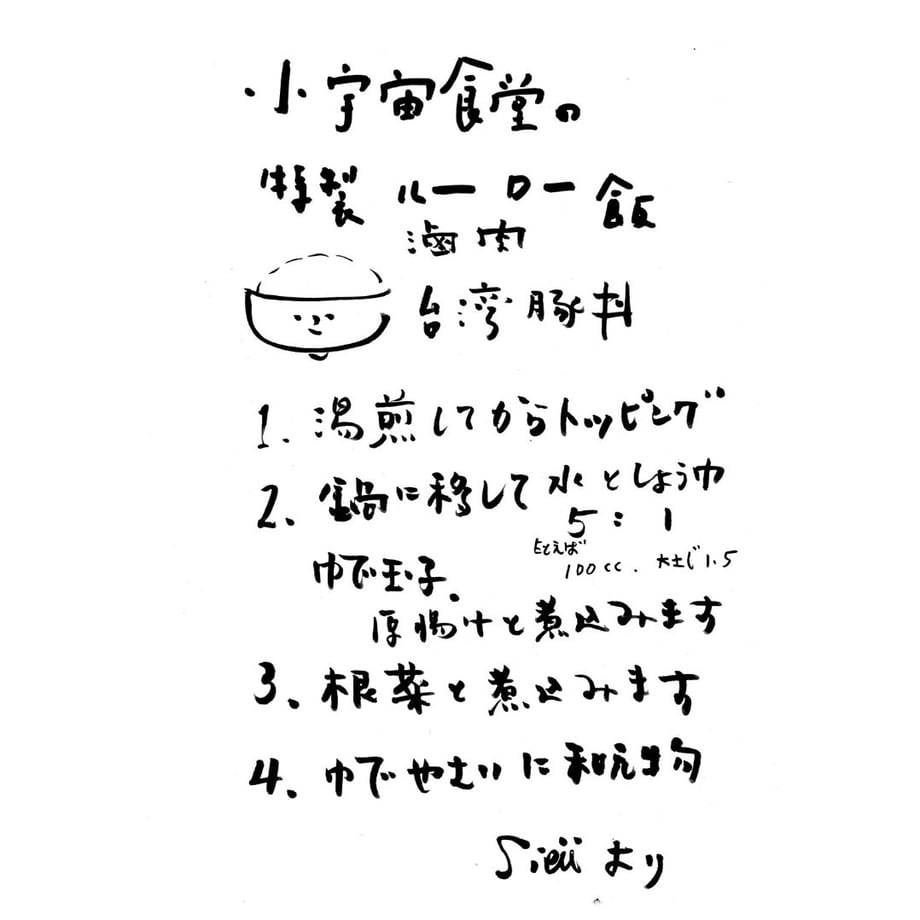 小宇宙食堂の
特製 ルーロー飯
滷肉
台湾豚丼
1. 湯煎してからトッピング
2. 鍋に移して 水としょうゆ
5:1
たとえば
100cc. 大さじ1.5
ゆで玉子.
厚揚げと煮込みます
3. 根菜と煮込みます
4. ゆでやさいに和え物
より